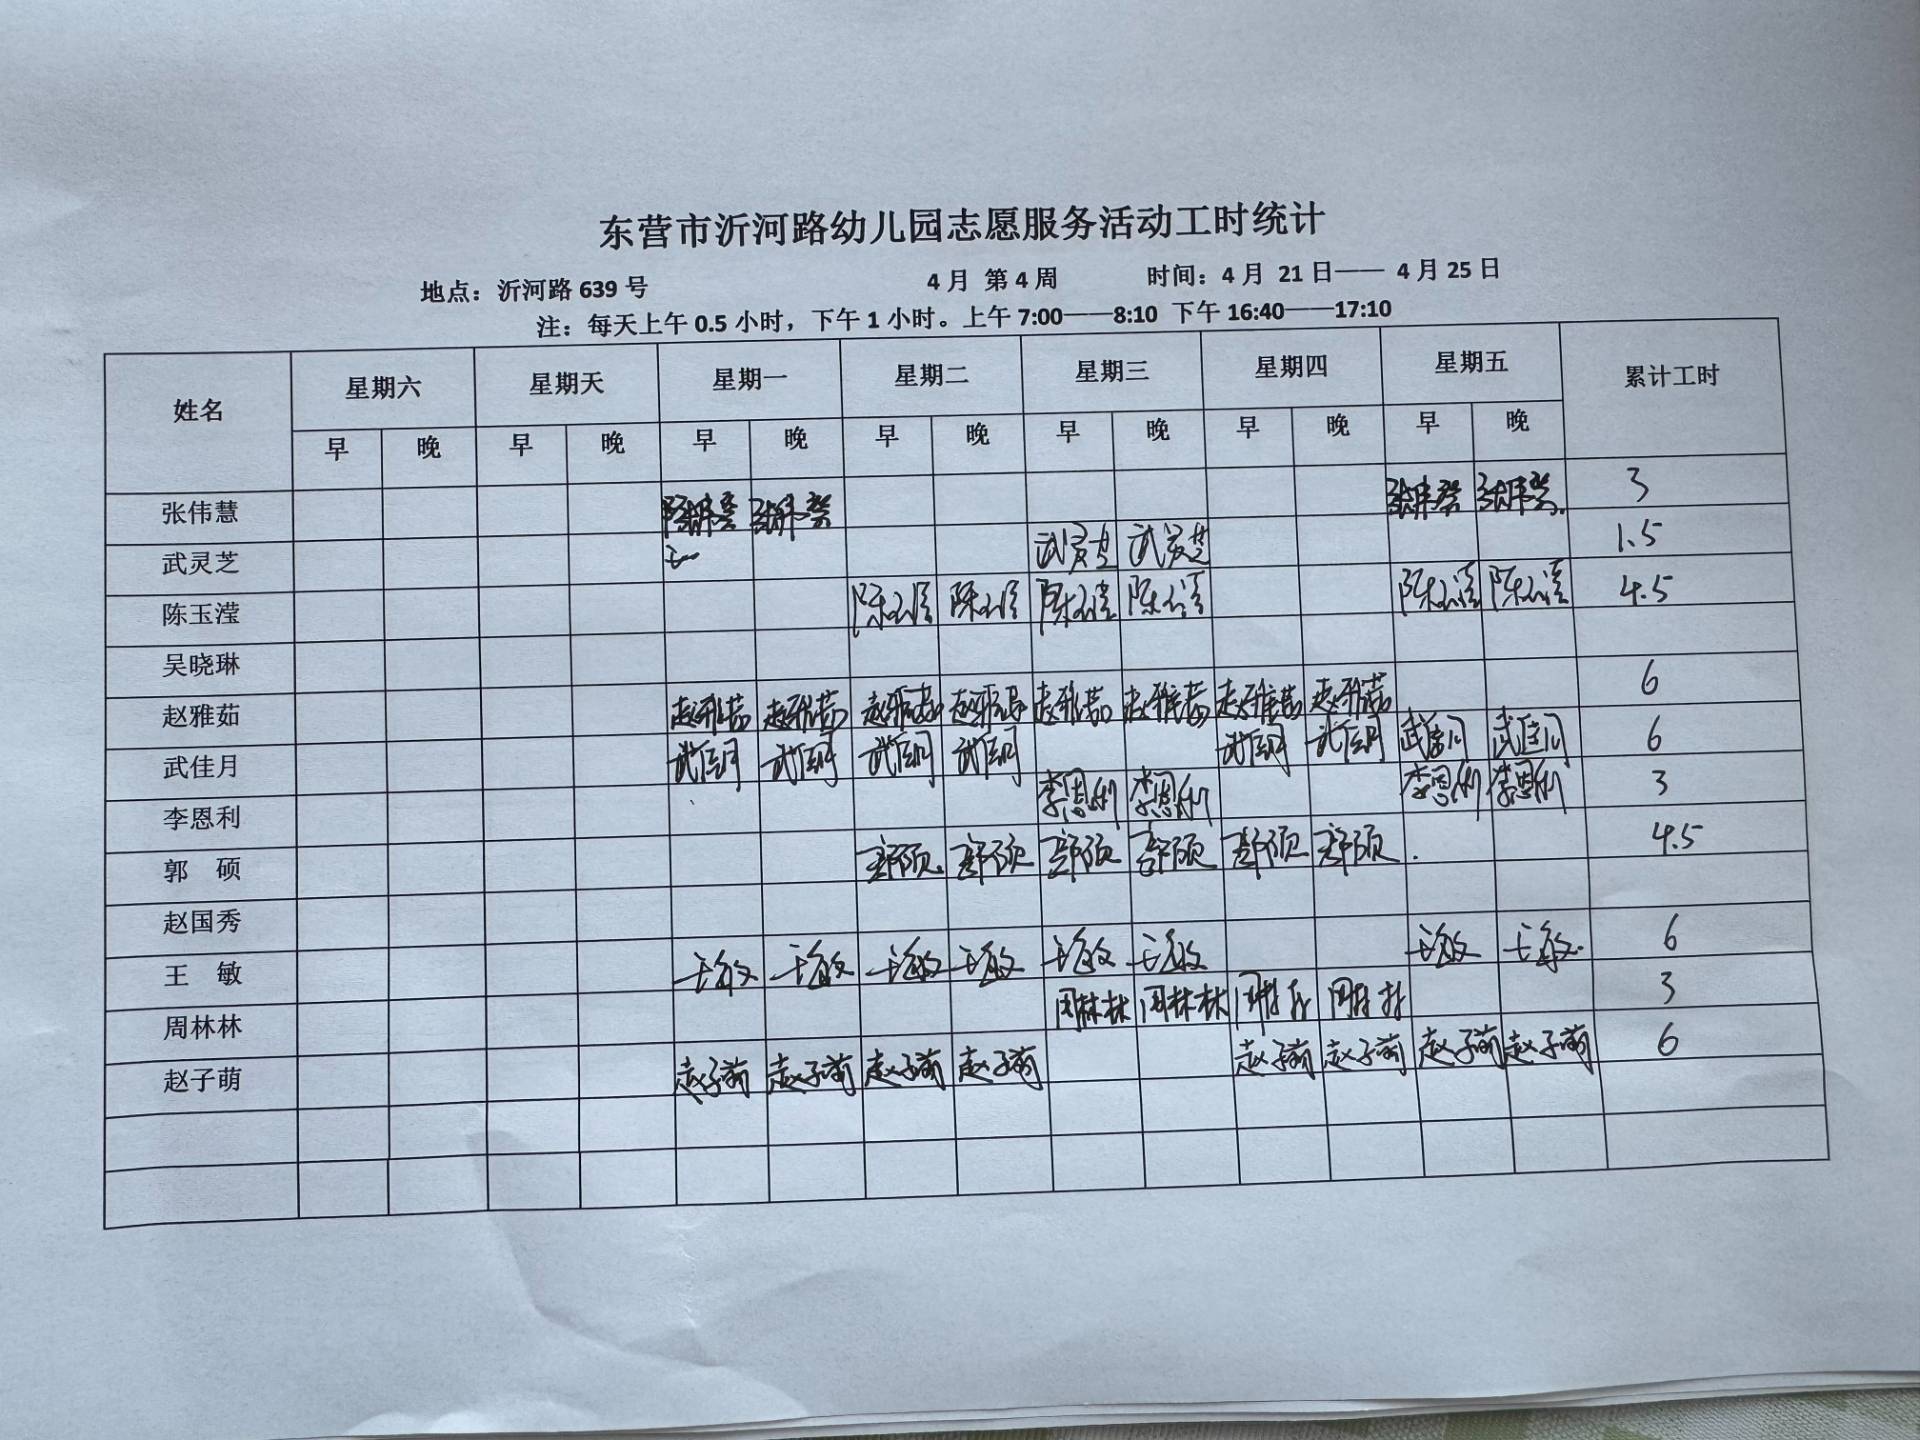 东营市沂河路幼儿园志愿服务活动工时统计
地点：沂河路 639 号 4 月 第 4 周 时间：4 月 21 日—— 4 月 25 日
注：每天上午 0.5 小时，下午 1 小时。上午 7:00——8:10 下午 16:40——17:10
姓名 星期六 星期天 星期一 星期二 星期三 星期四 星期五 累计工时
早 晚 早 晚 早 晚 早 晚 早 晚 早 晚 早 晚
张伟慧 张伟慧 张伟慧 张伟慧 张伟慧 3
武灵芝 武灵芝 武灵芝 1.5
陈玉滢 陈玉滢 陈玉滢 陈玉滢 陈玉滢 陈玉滢 陈玉滢 4.5
吴晓琳
赵雅茹 赵雅茹 赵雅茹 赵雅茹 赵雅茹 赵雅茹 赵雅茹 赵雅茹 赵雅茹 6
武佳月 武佳月 武佳月 武佳月 武佳月 武佳月 武佳月 武佳月 武佳月 6
李恩利 李恩利 李恩利 李恩利 李恩利 3
郭 硕 郭硕 郭硕 郭硕 郭硕 郭硕 郭硕 4.5
赵国秀
王 敏 王敏 王敏 王敏 王敏 王敏 王敏 王敏 王敏 6
周林林 周林林 周林林 周林林 周林林 3
赵子萌 赵子萌 赵子萌 赵子萌 赵子萌 赵子萌 赵子萌 赵子萌 赵子萌 6